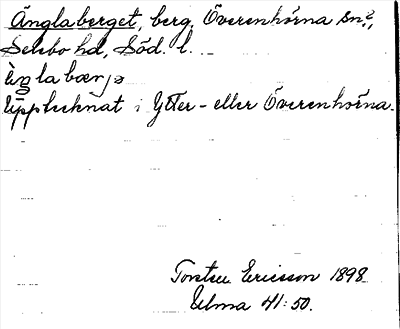 Änglaberget, berg, Överenhörna sn?,
Selebo hd, Söd. l.
Upptecknat i Ytter- eller Överenhörna.
Torsten Ericsson 1898
Ulma 41:50.